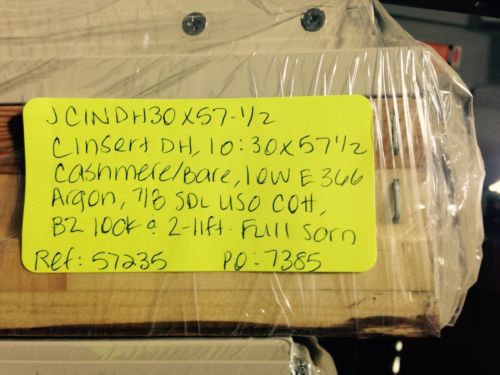 JCINDH30X57-1/2
CINSERT DH, IO: 30X57 1/2
Cashmere/Bare, LOW E 366
Argon, 7/8 SDL USO COH,
BZ lock & 2-lift. Full Scrn
Ref: 57235 PO: 7385